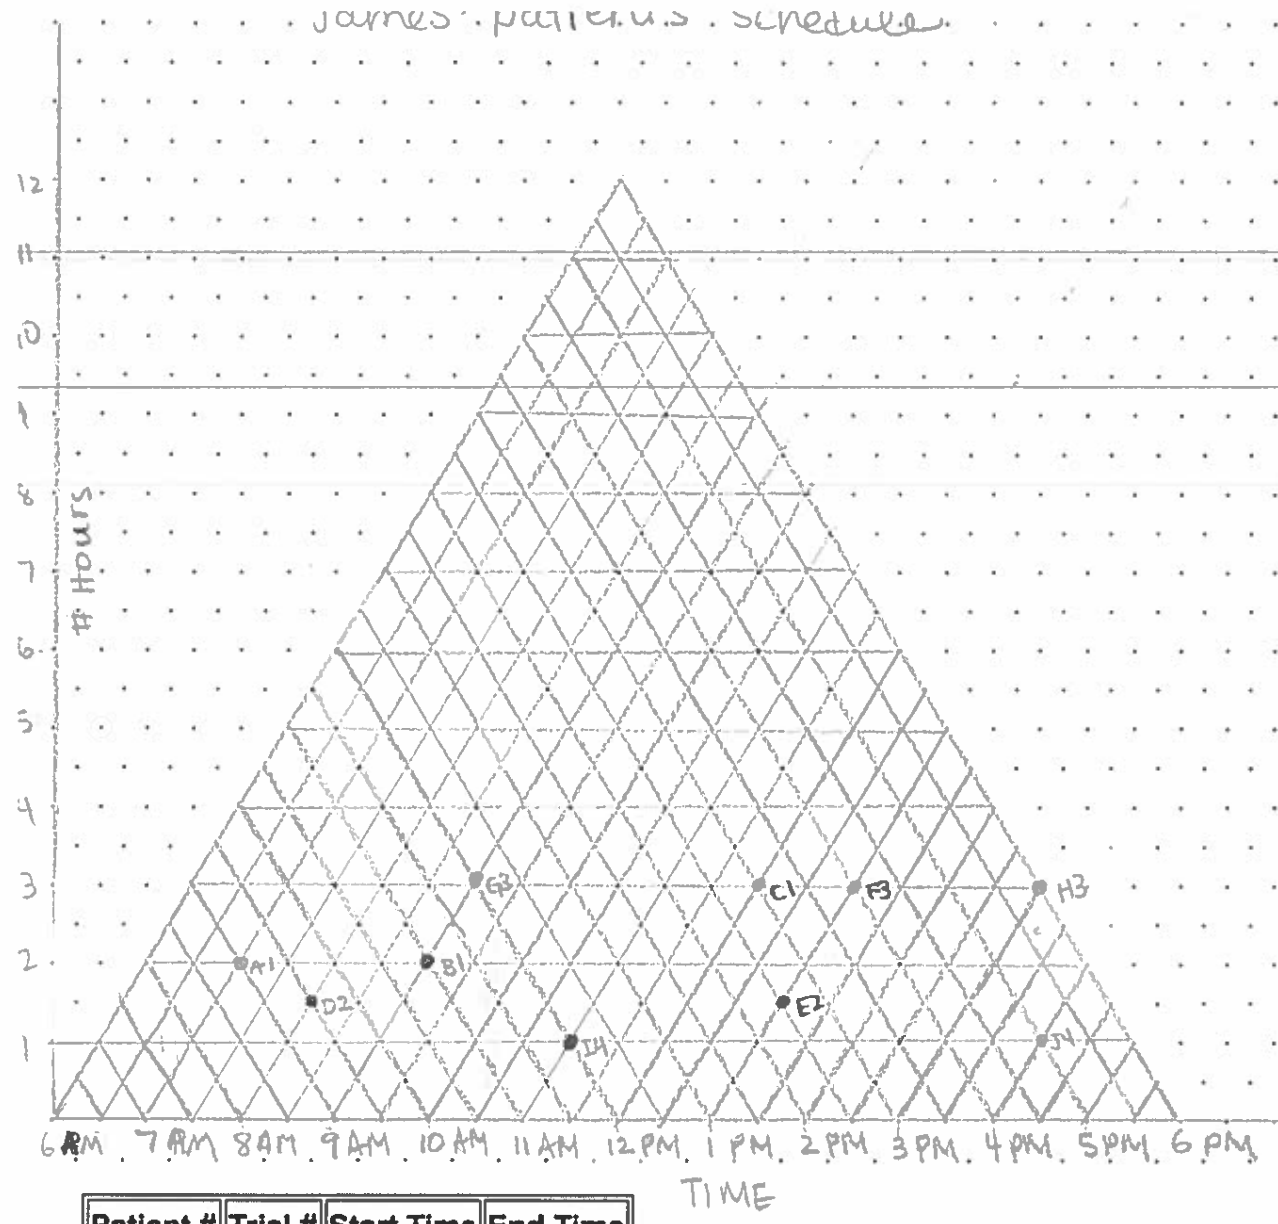 James' patients schedule
12
11
10
9
8
# Hours
7
6
5
4
3 G3 C1 F3 H3
2 A1 B1
D2 E2
1 I4 J4
6 AM 7 AM 8 AM 9 AM 10 AM 11 AM 12 PM 1 PM 2 PM 3 PM 4 PM 5 PM 6 PM
TIME
Patient # Trial # Start Time End Time